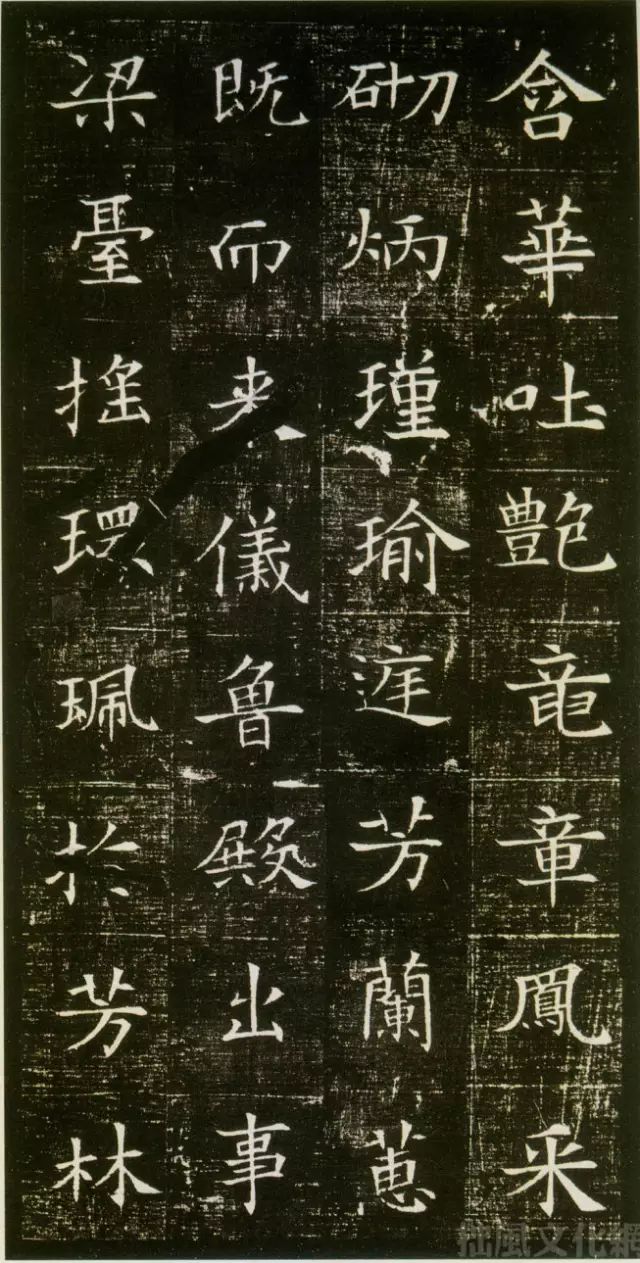 含華吐艷竜章鳳采
砌炳瑾瑜庭芳蘭蕙
既而来儀魯殿出事
梁臺搖環珮於芳林
拙風文化網